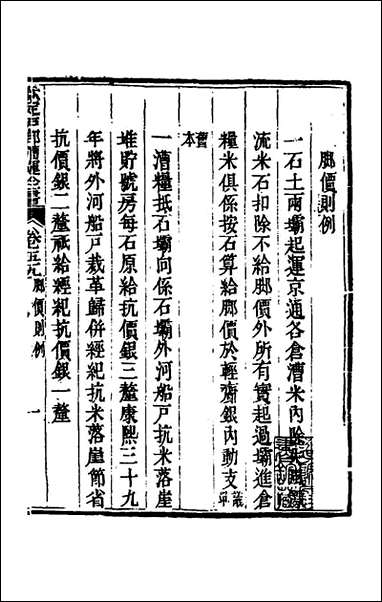 腳價則例
一石土兩壩起運京通各倉漕米內除
流米石扣除不給腳價外所有實起過壩進倉
糧米俱係按石算給腳價於輕齎銀內動支
舊本
一漕糧抵石壩向係石壩外河船戶抗米落崖
堆貯號房每石原給抗價銀三釐康熙三十九
年將外河船戶裁革歸併經紀抗米落崖節省
抗價銀二釐祗給經紀抗價銀一釐
欽定戶部漕運全書
卷五九 腳價則例 一